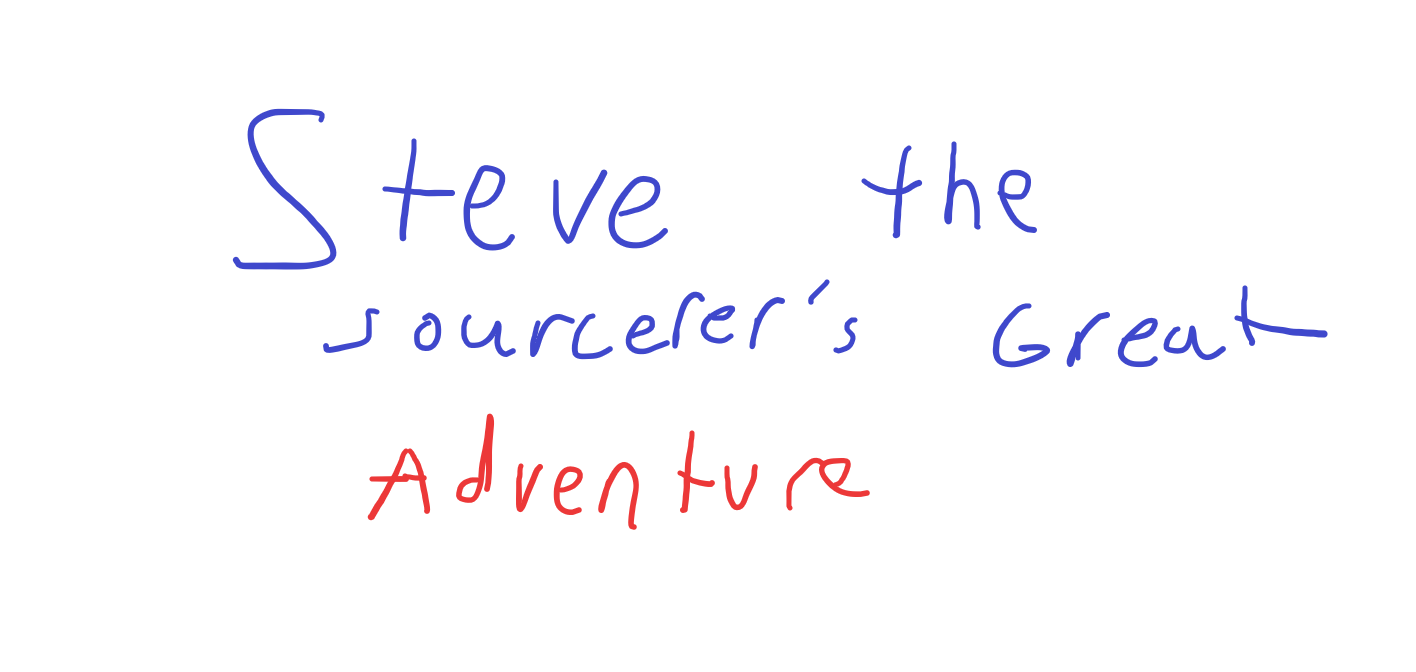 Steve the
sourcerer's Great
Adventure